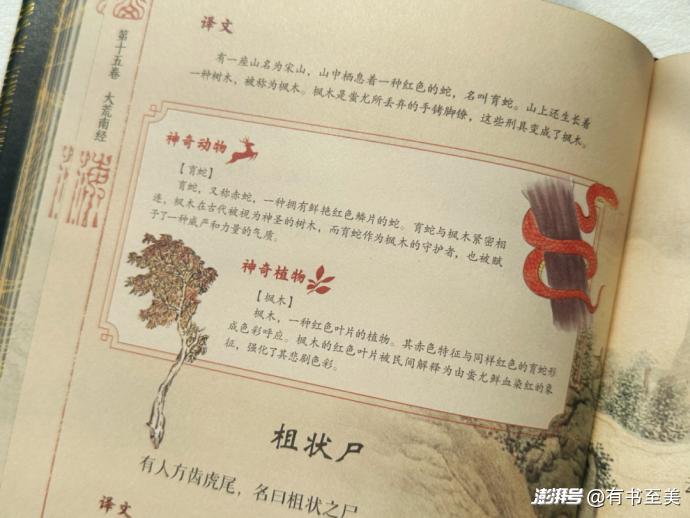 第十五卷 大荒南经
译文
有一座山名为宋山，山中栖息着一种红色的蛇，名叫育蛇。山上还生长着
一种树木，被称为枫木。枫木是蚩尤所丢弃的手铐脚镣，这些刑具变成了枫木。
神奇动物
【育蛇】
育蛇，又称赤蛇，一种拥有鲜艳红色鳞片的蛇。育蛇与枫木紧密相
连，枫木在古代被视为神圣的树木，而育蛇作为枫木的守护者，也被赋
予了一种威严和力量的气质。
神奇植物
【枫木】
枫木，一种红色叶片的植物。其赤色特征与同样红色的育蛇形
成色彩呼应。枫木的红色叶片被民间解释为由蚩尤鲜血染红的象
征，强化了其悲剧色彩。
祖状尸
有人方齿虎尾，名曰祖状之尸
译文
澎湃号@有书至美